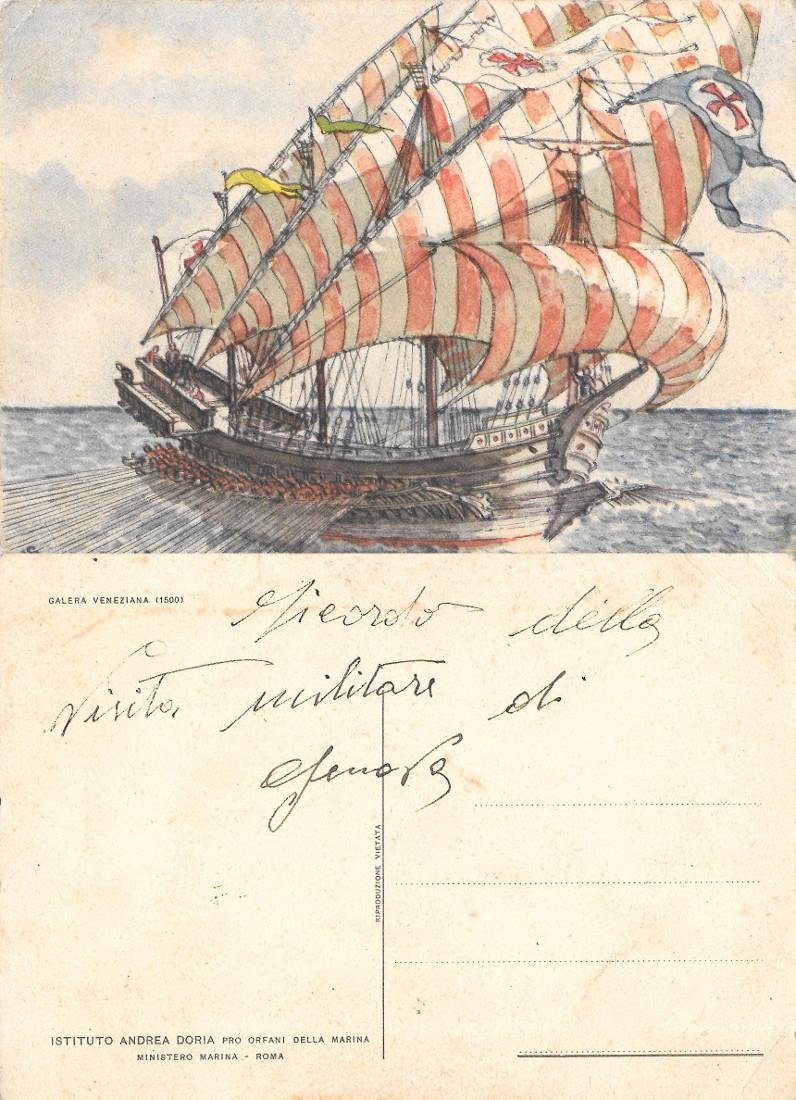 GALERA VENEZIANA (1500)
Ricordo della
Visita militare di
Genova
RIPRODUZIONE VIETATA
ISTITUTO ANDREA DORIA PRO ORFANI DELLA MARINA
MINISTERO MARINA - ROMA